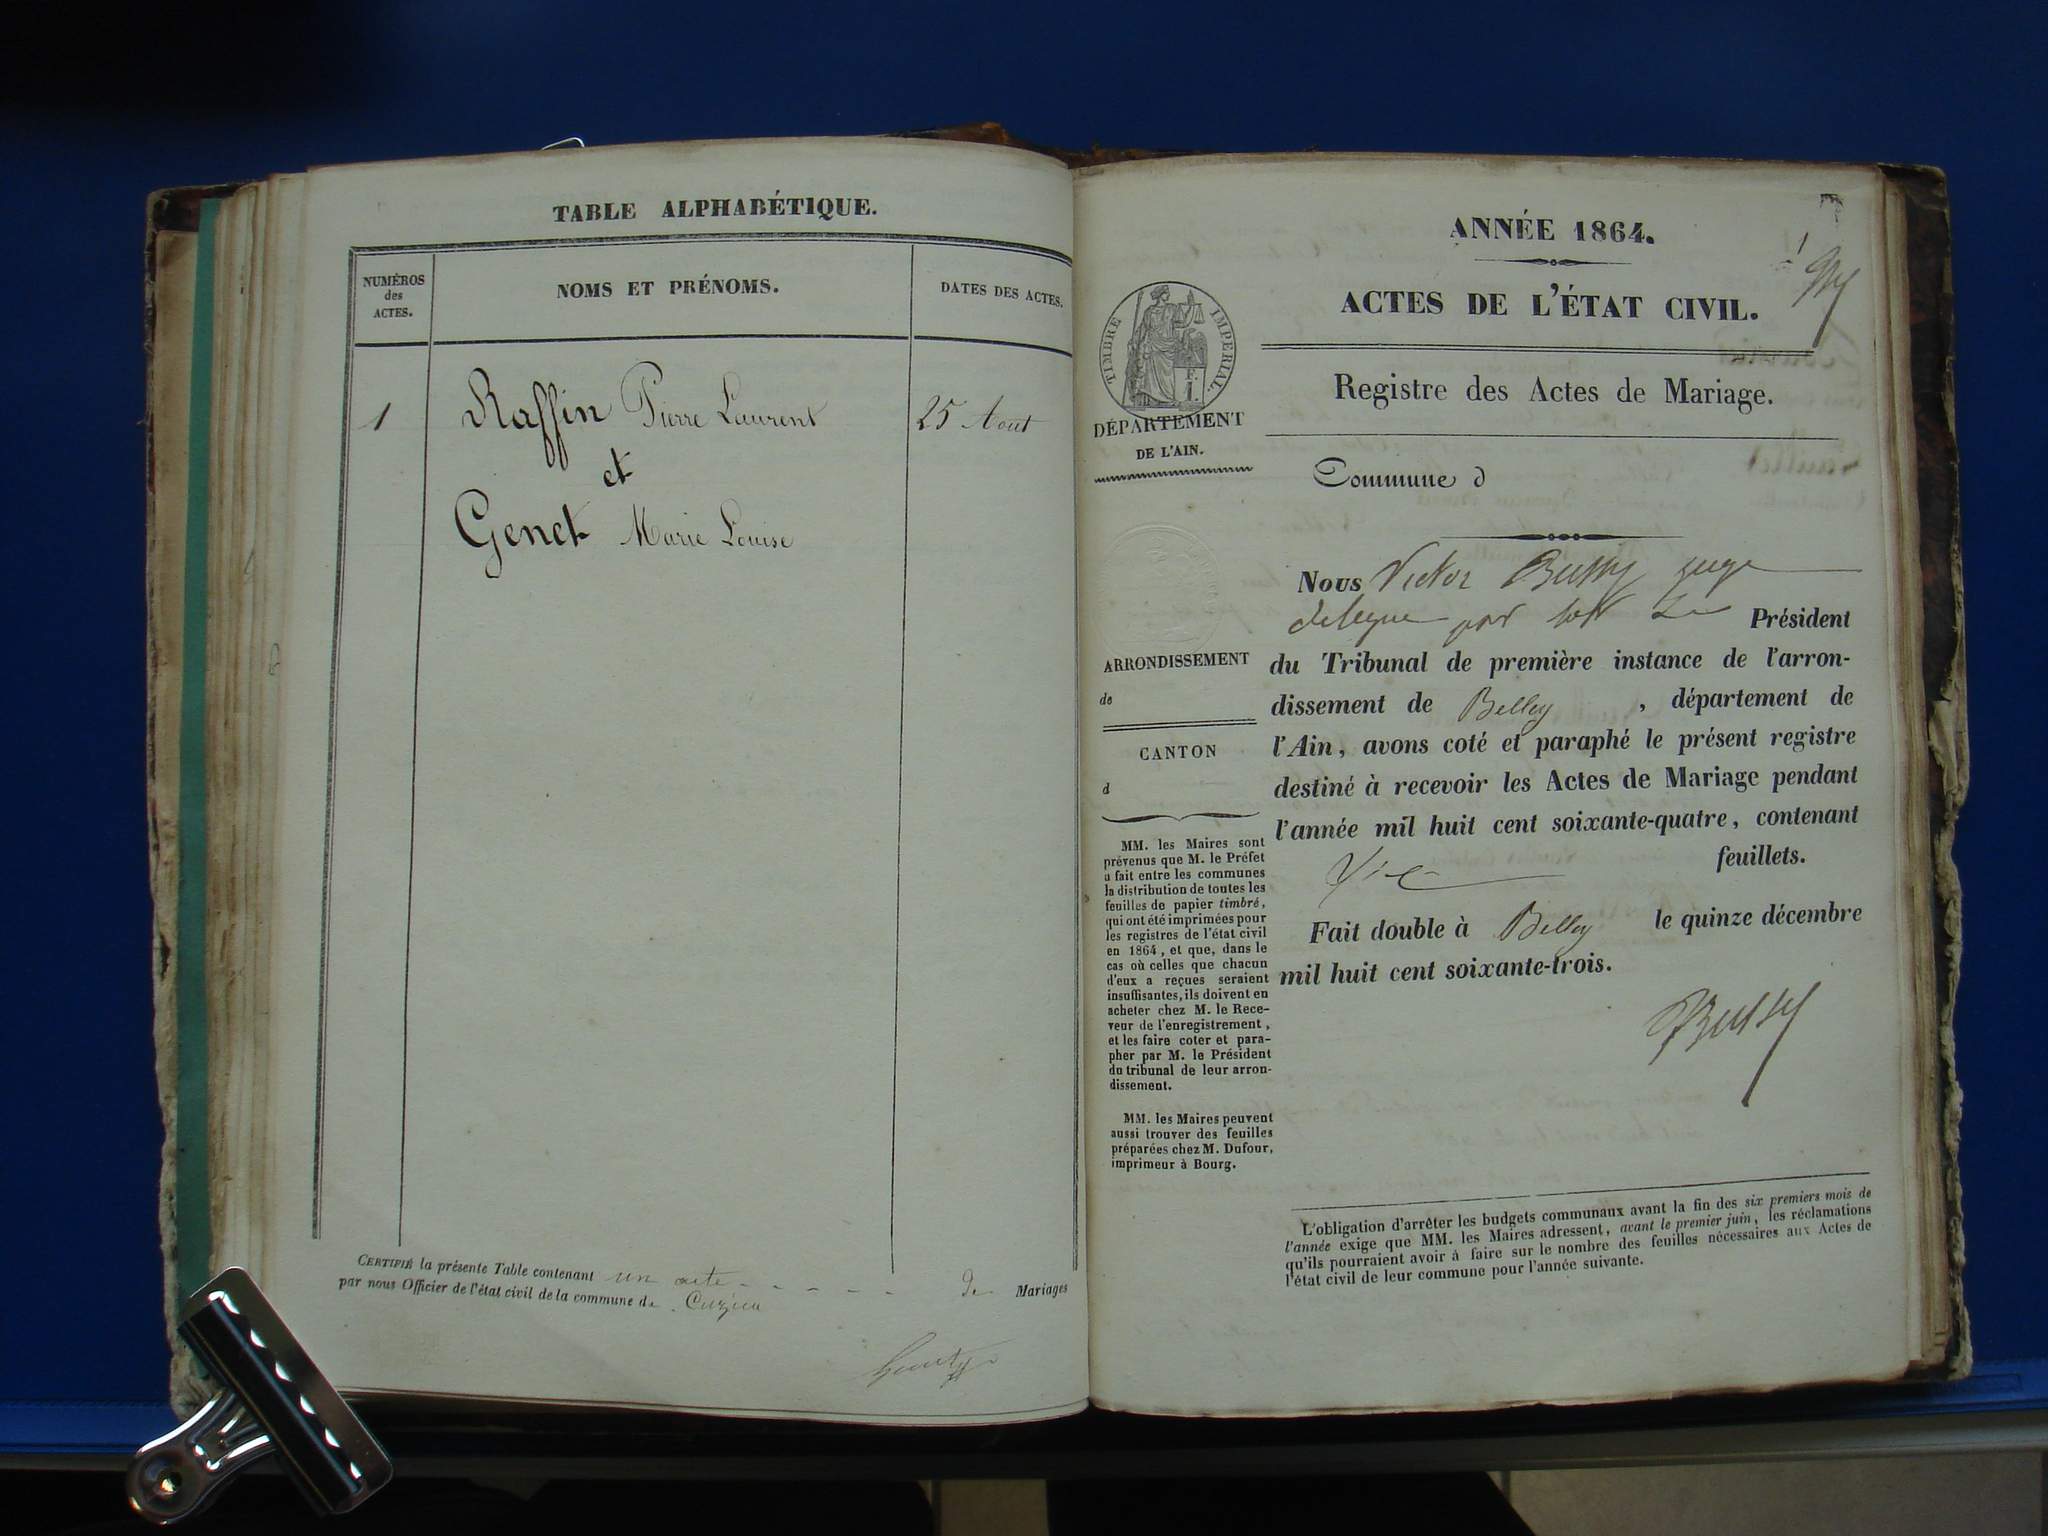 TABLE ALPHABÉTIQUE.
NUMÉROS
des
ACTES.
NOMS ET PRÉNOMS.
DATES DES ACTES.
1 Raffin Pierre Laurent 25 Aout
et
Genet Marie Louise
CERTIFIÉ la présente Table contenant un acte de Mariages
par nous Officier de l'état civil de la commune de Cuzieu
ANNÉE 1864.
1
ACTES DE L'ÉTAT CIVIL.
TIMBRE IMPERIAL.
DÉPARTEMENT
DE L'AIN.
Registre des Actes de Mariage.
Commune d
Nous Victor Bussy juge
delegue par Président
du Tribunal de première instance de l'arron-
dissement de Belley , département de
l'Ain, avons coté et paraphé le présent registre
destiné à recevoir les Actes de Mariage pendant
l'année mil huit cent soixante-quatre, contenant
feuillets.
Fait double à Belley le quinze décembre
mil huit cent soixante-trois.
Bussy
ARRONDISSEMENT
de
CANTON
d
MM. les Maires sont
prévenus que M. le Préfet
a fait entre les communes
la distribution de toutes les
feuilles de papier timbré,
qui ont été imprimées pour
les registres de l'état civil
en 1864, et que, dans le
cas où celles que chacun
d'eux a reçues seraient
insuffisantes, ils doivent en
acheter chez M. le Rece-
veur de l'enregistrement,
et les faire coter et para-
pher par M. le Président
du tribunal de leur arron-
dissement.
MM. les Maires peuvent
aussi trouver des feuilles
préparées chez M. Dufour,
imprimeur à Bourg.
L'obligation d'arrêter les budgets communaux avant la fin des six premiers mois de
l'année exige que MM. les Maires adressent, avant le premier juin, les réclamations
qu'ils pourraient avoir à faire sur le nombre des feuilles nécessaires aux Actes de
l'état civil de leur commune pour l'année suivante.